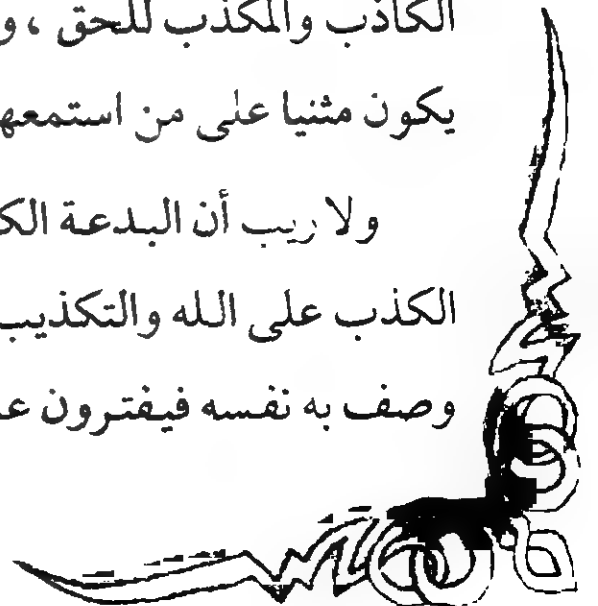 الكاذب والمكذب للحق ، و
يكون مثنيا على من استمعها
ولا ريب أن البدعة
الكذب على الله والتكذيب
وصف به نفسه فيفترون